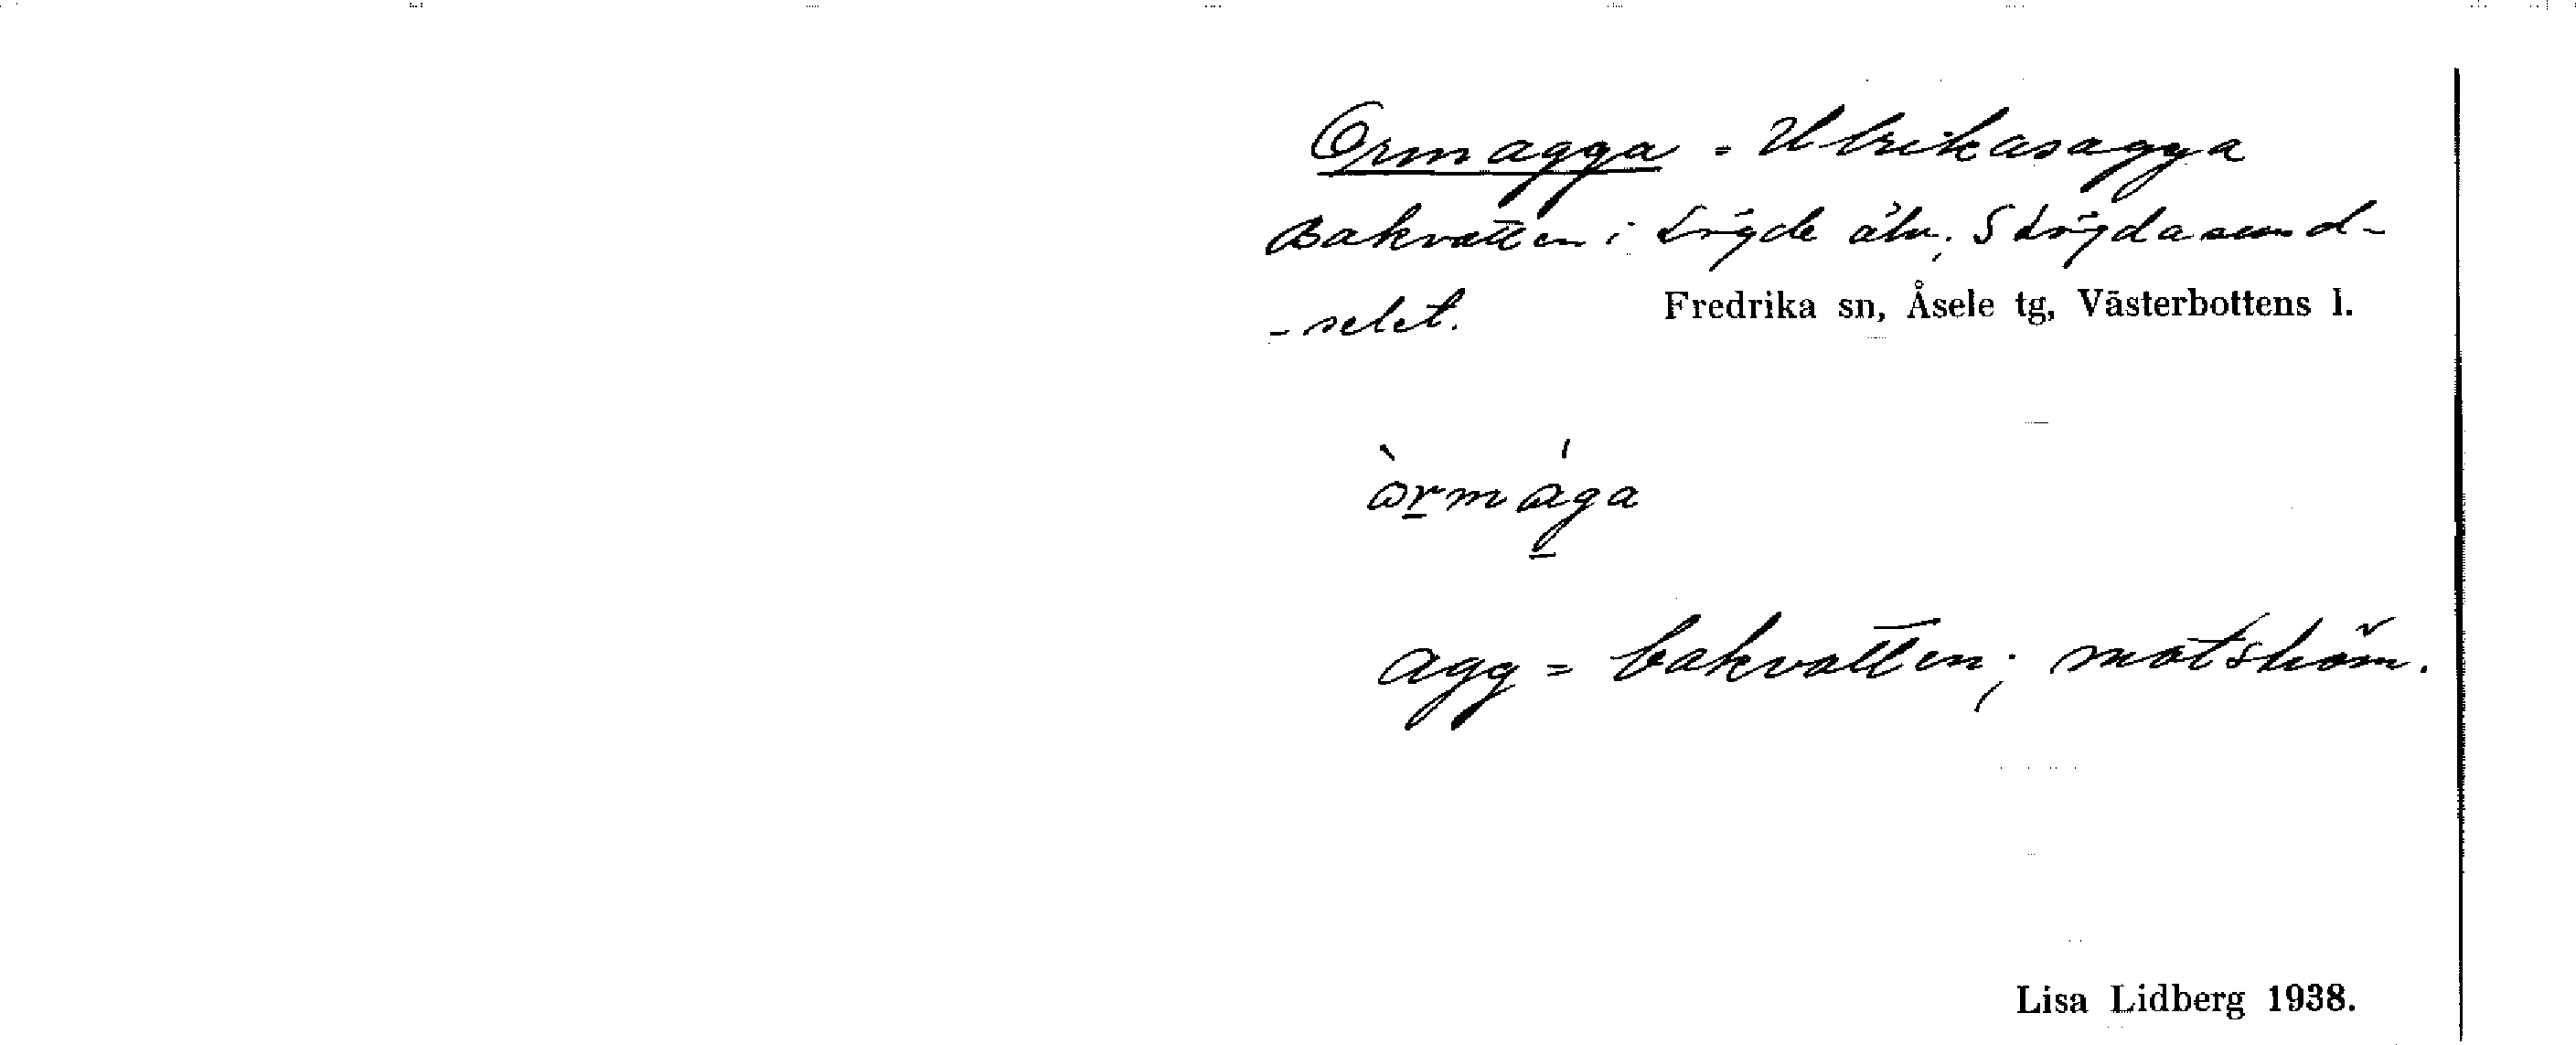 Ormagga = Ulrikasagga
Bakvatten i Lögde älv, S Lögdasund-
-selet. Fredrika sn, Åsele tg, Västerbottens l.
òrmága
agg = bakvatten; motström.
Lisa Lidberg 1938.